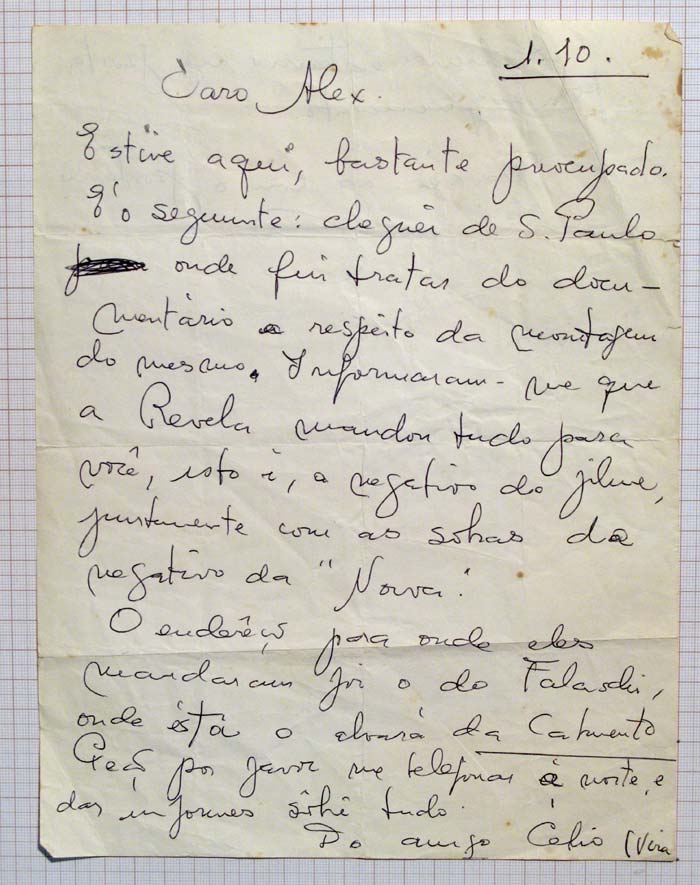 1.10.
Caro Alex.
Estive aqui, bastante preocupado.
É o seguinte: cheguei de S. Paulo
onde fui tratar do docu-
mentário a respeito da montagem
do mesmo. Informaram-me que
a Revela mandou tudo para
você, isto é, o negativo do filme,
juntamente com as sobras de
negativo da "
O enderêço para onde eles
mandaram foi o do Falaschi,
onde está o alvará da
Peço por favor me telefonar à noite, e
dar informes sôbre tudo.
Do amigo Celio (Vira